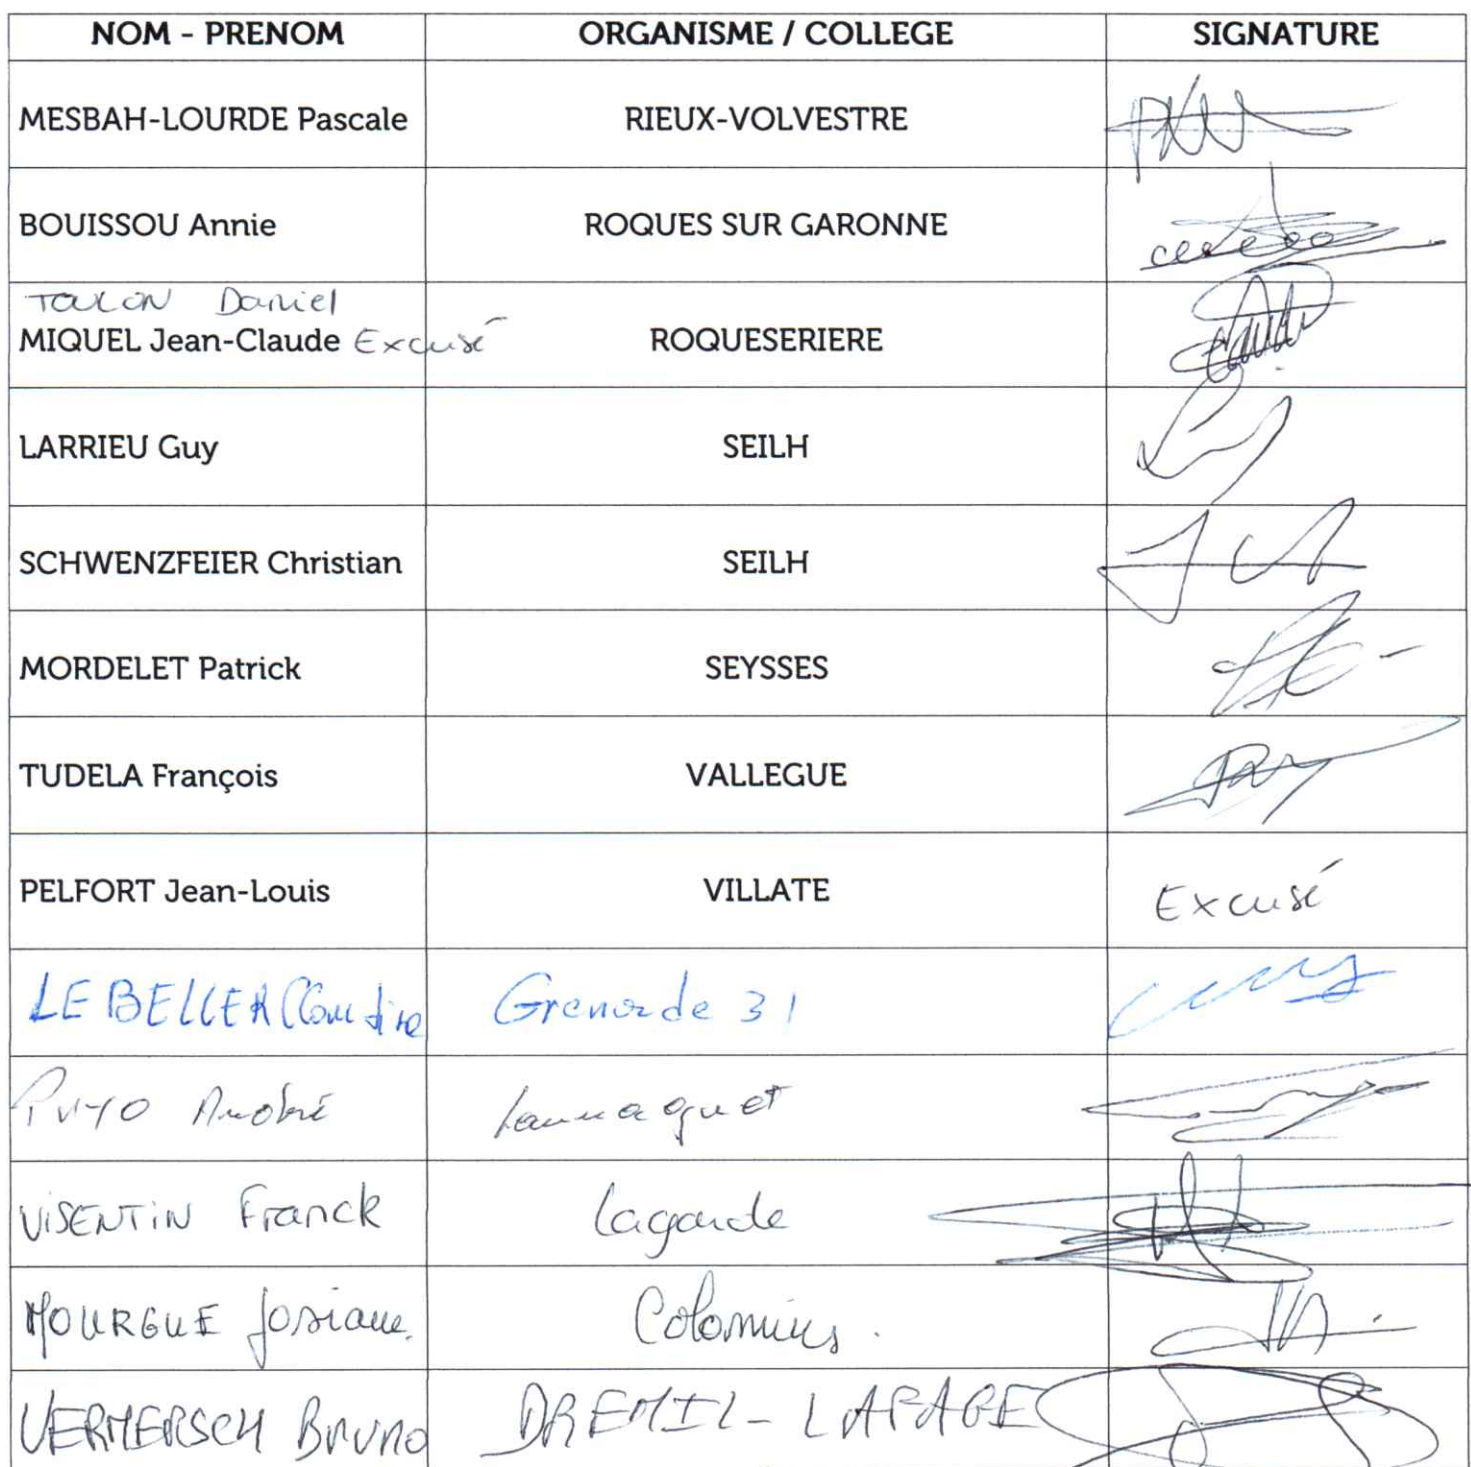 NOM - PRENOM ORGANISME / COLLEGE SIGNATURE
MESBAH-LOURDE Pascale RIEUX-VOLVESTRE
BOUISSOU Annie ROQUES SUR GARONNE
TOULON Daniel
MIQUEL Jean-Claude Excusé ROQUESERIERE
LARRIEU Guy SEILH
SCHWENZFEIER Christian SEILH
MORDELET Patrick SEYSSES
TUDELA François VALLEGUE
PELFORT Jean-Louis VILLATE Excusé
LE BELLER Claudine Grenade 31
PUYO André Launaguet
VISENTIN Franck Lagarde
MOURGUE Josiane Colomiers.
VERMERSCH Bruno DREMIL-LAFAGE